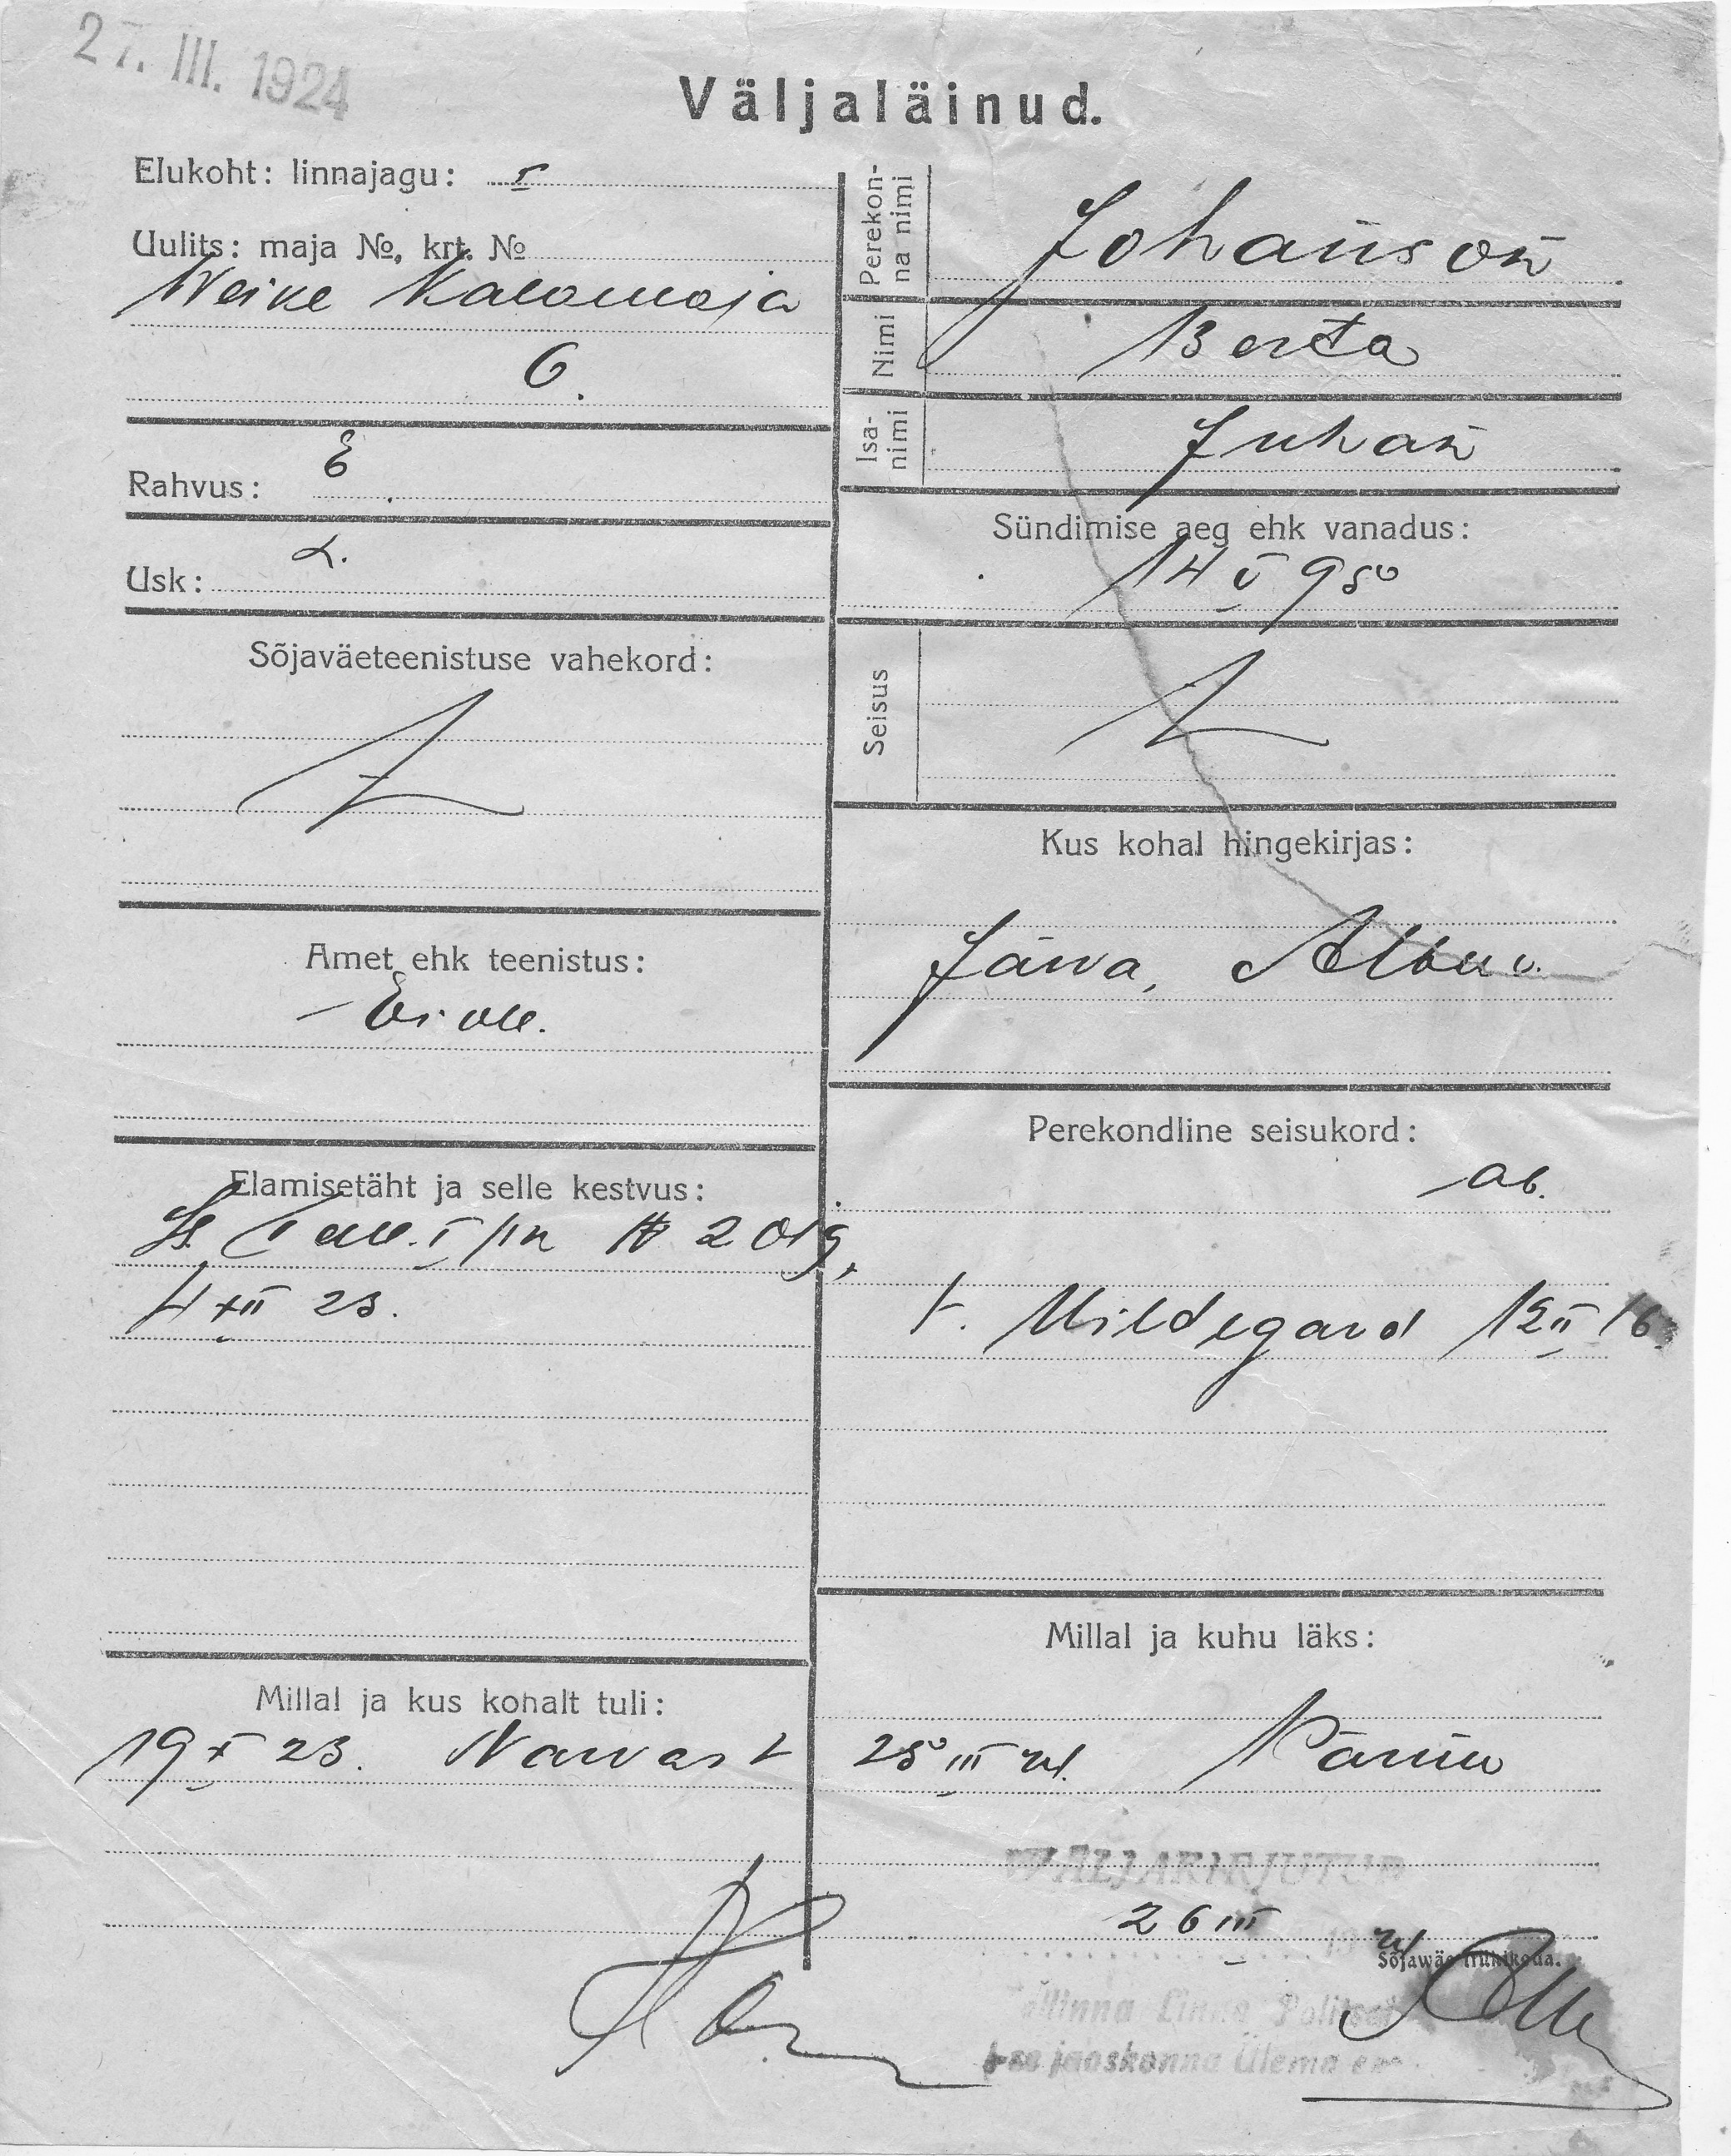 27. III. 1924
Väljaläinud.
Elukoht: linnajagu: I
Uulits: maja №, krt. №
Weike Kalamaja
6.
Rahvus: E
Usk: L.
Sõjaväeteenistuse vahekord:
Amet ehk teenistus:
Ei ole.
Elamisetäht ja selle kestvus:
Tall. I jsk № 2019,
4 XII 23.
Millal ja kus kohalt tuli:
19 X 23. Narvast
Perekonna nimi
Johanson
Nimi
Berta
Isanimi
Juhan
Sündimise aeg ehk vanadus:
14 V
Seisus
Kus kohal hingekirjas:
Järva, Albu v.
Perekondline seisukord:
ab.
t. Hildegard 12 II 16
Millal ja kuhu läks:
25 III 24. Pärnu
WÄLJAKIRJUTUD
26 III 1924
Sõjawäe trükikoda.
Tallinna Linna Politsei
jaoskonna Ülema